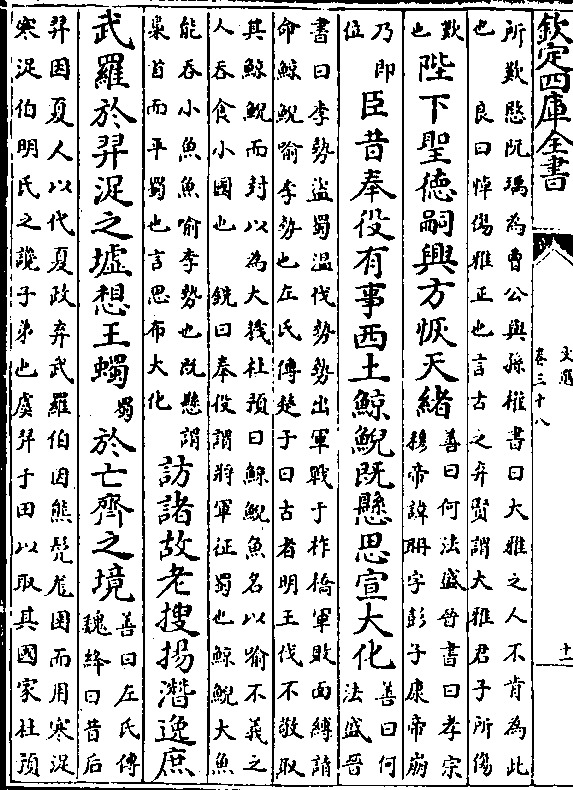 欽定四庫全書
文選
卷三十八
十一
所歎愍阮瑀為曹公與孫權書曰大雅之人不肯為此
也 良曰悼傷雅正也言古之弃賢謂大雅君子所傷
歎
也
陛下聖德嗣興方恢天緒
善曰何法盛晉書曰孝宗
穆帝諱聃字彭子康帝崩
乃即
位
臣昔奉役有事西土鯨鯢既懸思宣大化
善曰何
法盛晉
書曰李勢盜蜀温伐勢勢出軍戰于柞橋軍敗面縛請
命鯨鯢喻李勢也左氏傳楚子曰古者明王伐不敬取
其鯨鯢而封以為大戮杜預曰鯨鯢魚名以喻不義之
人吞食小國也 銑曰奉役謂將軍征蜀也鯨鯢大魚
能吞小魚魚喻李勢也既懸謂
梟首而平蜀也言思布大化
訪諸故老搜揚潛逸庶
武羅於羿浞之墟想王蠋
蜀
於亡齊之境
善曰左氏傳
魏絳曰昔后
羿因夏人以代夏政弃武羅伯因熊髠尨圉而用寒浞
寒浞伯明氏之讒子弟也虞羿于田以取其國家杜預